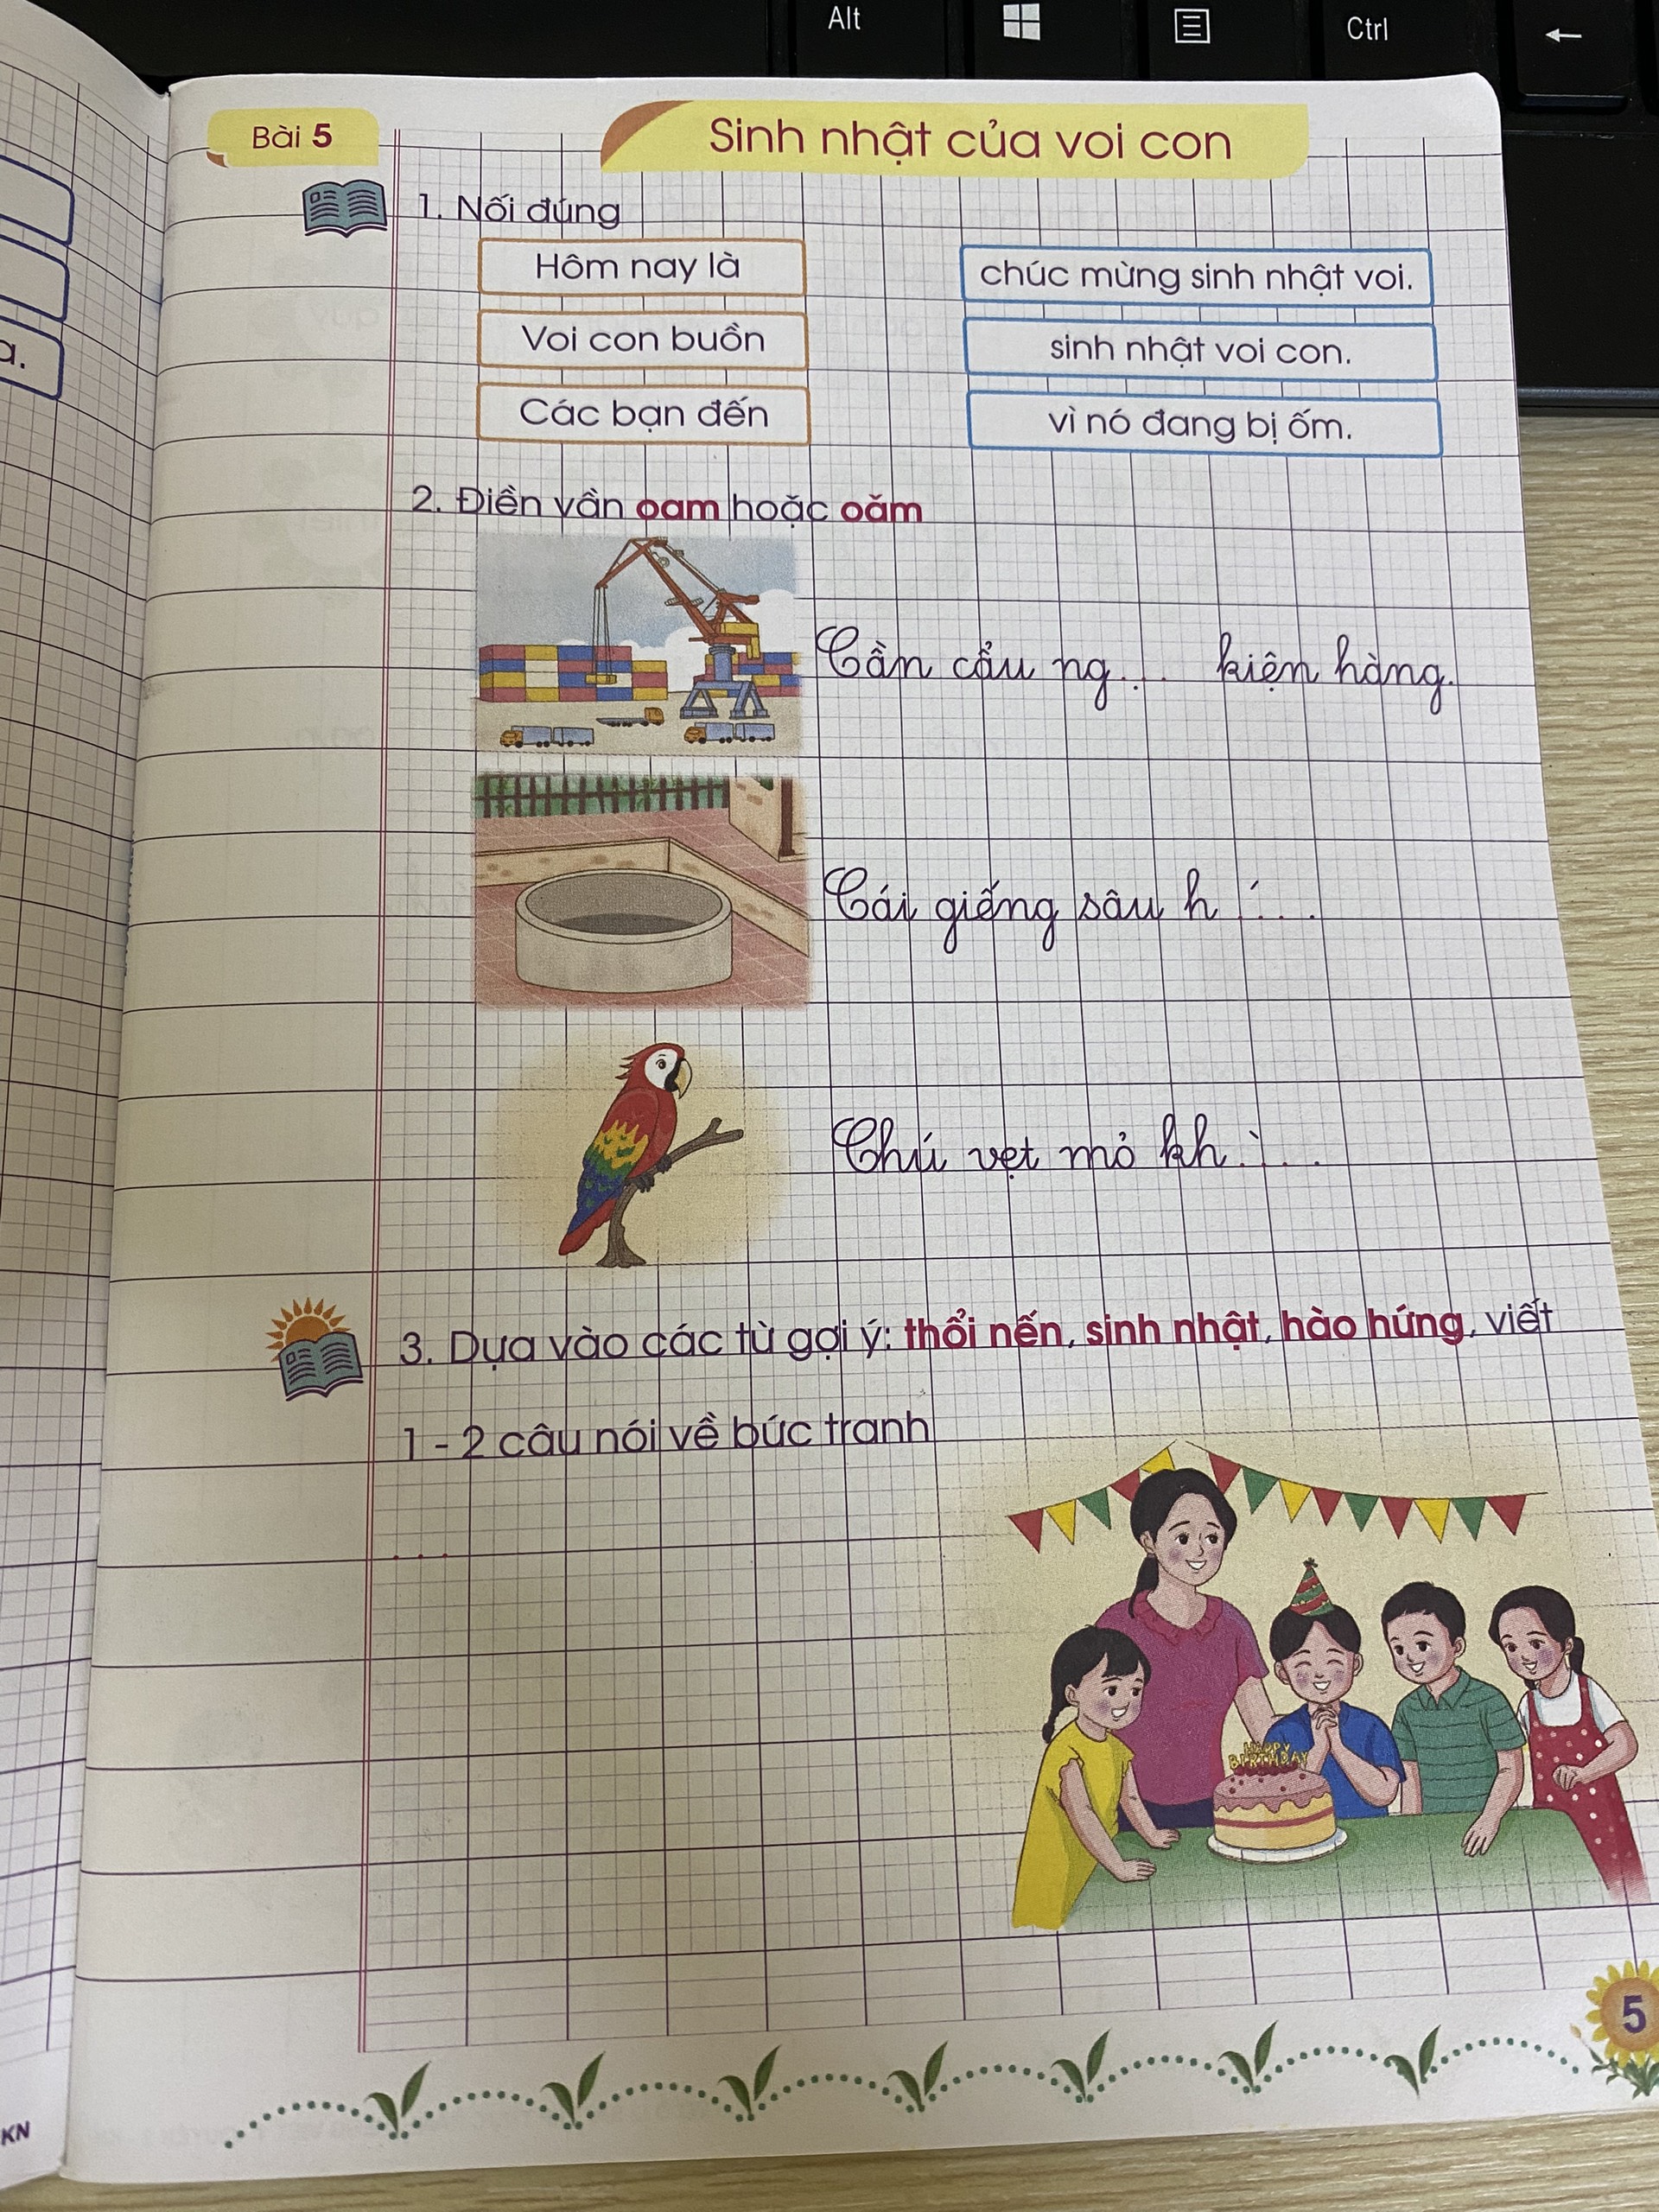 Alt
Ctrl
Bài 5
Sinh nhật của voi con
1. Nối đúng
Hôm nay là
chúc mừng sinh nhật voi.
Voi con buồn
sinh nhật voi con.
a.
Các bạn đến
vì nó đang bị ốm.
2. Điền vần oam hoặc oăm
Cần cẩu ng... kiện hàng.
Cái giếng sâu h ́...
Chú vẹt mỏ kh ̀....
3. Dựa vào các từ gợi ý: thổi nến, sinh nhật, hào hứng, viết
1 - 2 câu nói về bức tranh
...
HAPPY
BIRTHDAY
5
KN